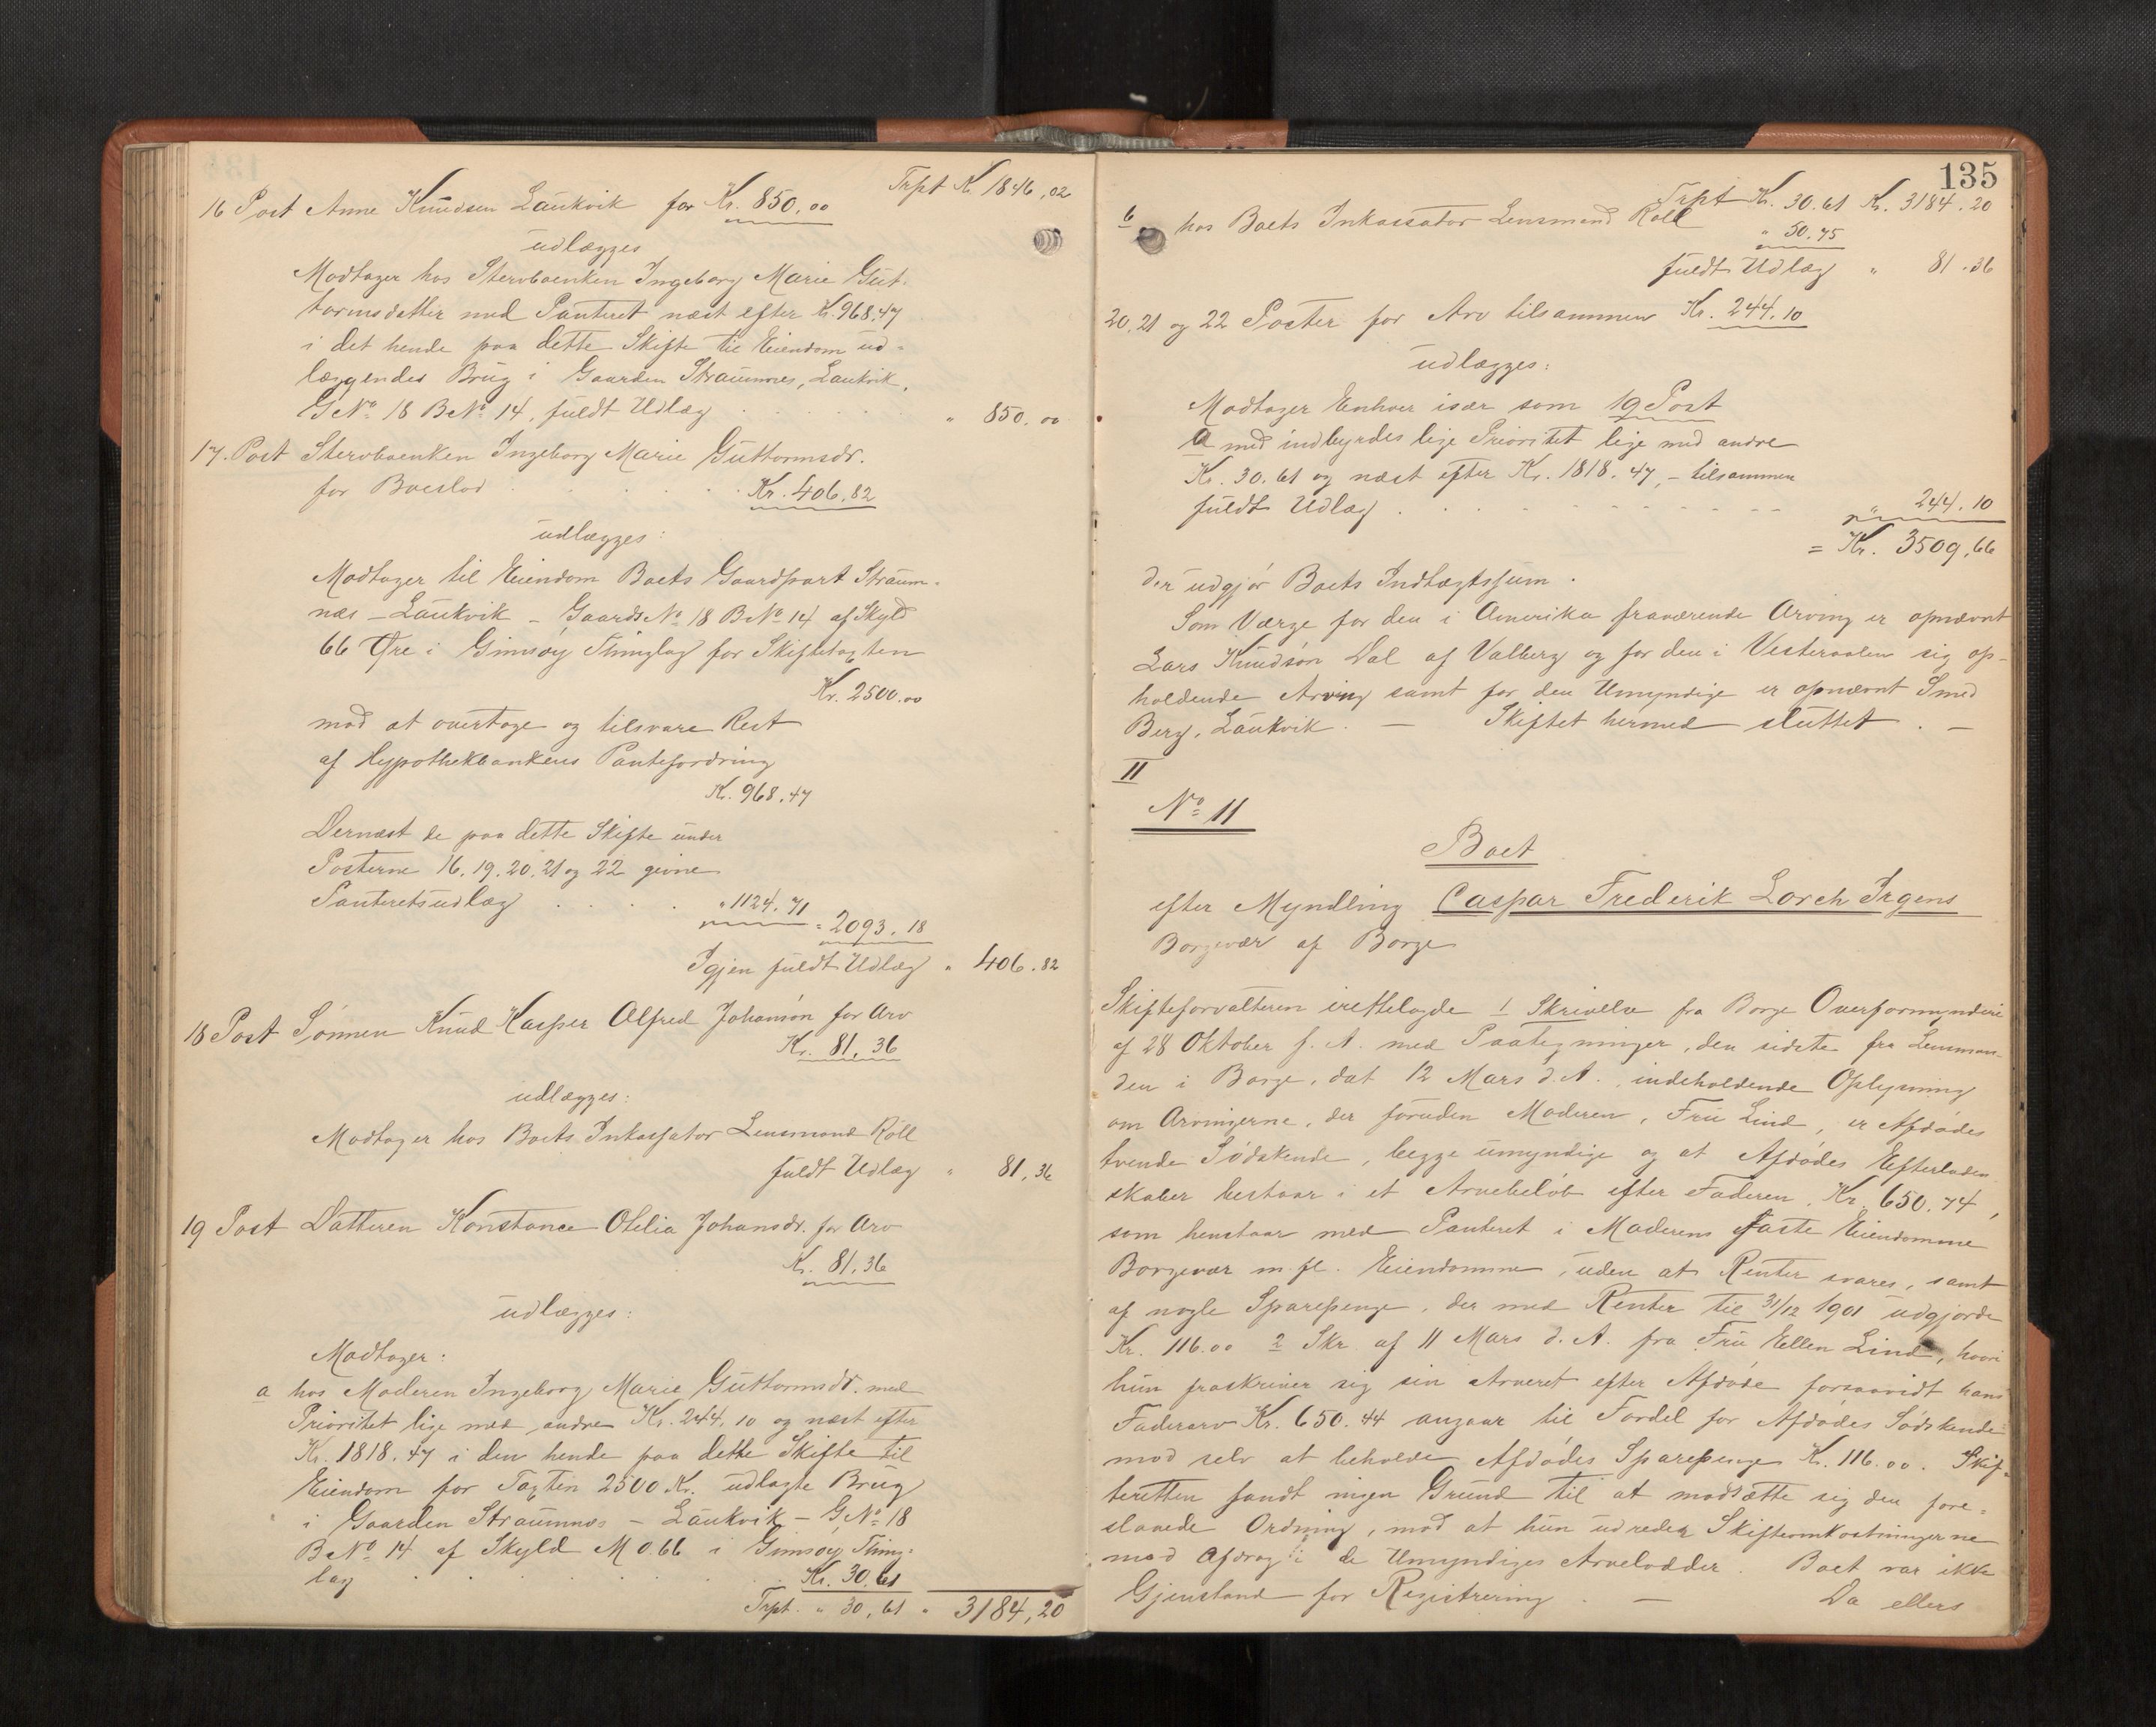 Trpt Kr. 1846,02
16 Post Anne Knudsen Laukvik for Kr. 850,00
udlægges
Modtager hos Stervboenken Ingeborg Marie Gut-
tormsdatter med Panteret næst efter Kr. 968,47
i det hende paa dette Skifte til Eiendom ud-
læggendes Brug i Gaarden Straumnes, Laukvik,
G No 18 B No 14, fuldt Udlæg . . . . . " 850,00
17. Post Stervboenken Ingeborg Marie Guttormsdr.
for Boeslod . . . . . Kr. 406,82
udlægges:
Modtager til Eiendom Boets Gaardpart Straum-
nes - Laukvik - Gaards No 18 B No 14 af Skyld
66 Øre i Gimsøy Thinglag for Skiftetagten
Kr. 2500.00
mod at overtage og tilsvare Rest
af Hypothekbankens Pantefordring
Kr. 968,47
Dernæst de paa dette Skifte under
Posterne 16, 19, 20, 21 og 22 givne
Panteretsudlæg . . . . " 1124,71
= 2093,18
Igjen fuldt Udlæg " 406.82
18 Post Sønnen Knud Kasper Alfred Johansøn for Arv
Kr. 81,36
udlægges:
Modtager hos Boets Inkassator Lensmand Röll
fuldt Udlæg " 81,36
19 Post Datteren Konstance Otelia Johansdr. for Arv
Kr. 81,36
udlægges:
Modtager:
a hos Moderen Ingeborg Marie Guttormsdr. med
Prioritet lige med andre Kr. 244,10 og næst efter
Kr. 1818,47 i den hende paa dette Skifte til
Eiendom for Tagten 2500 Kr. udlagte Brug
i Gaarden Straumnes - Laukvik - G No 18
B No 14 af Skyld M 0.66 i Gimsøy Thing-
lag . . . . . Kr. 30,61
Trpt. " 30,61 " 3184,20
135
Trpt Kr. 30.61 Kr. 3184.20
b hos Boets Inkassator Lensmand Röll
" 50.75
fuldt Udlæg " 81.36
20, 21 og 22 Poster for Arv tilsammen Kr. 244,10
udlægges:
Modtager Enhver især som 19 Post
a med indbyrdes lige Prioritet lige med andre
Kr. 30.61 og næst efter Kr. 1818.47, - tilsammen
fuldt Udlæg . . . . . " 244.10
= Kr. 3509,66
der udgjør Boets Indtægtssum.
Som Værge for den i Amerika fraværende Arving er opnævnt
Lars Knudsøn Dal af Valberg og for den i Vesteraalen sig op-
holdende Arving samt for den Umyndige er opnævnt Smed
Berg, Laukvik. — Skiftet hermed sluttet. —
II
No 11
Boet
efter Myndling Caspar Frederik Lorch Irgens
Borgevær af Borge
Skifteforvalteren irettelagde 1 Skrivelse fra Borge Overformynderi
af 28 Oktober f. A. med Paategninger, den sidste fra Lensman-
den i Borge, dat 12 Mars d. A., indeholdende Oplysning
om Arvingerne, der foruden Moderen, Fru Lind, er Afdødes
tvende Sødskende, begge umyndige og at Afdødes Efterladen
skaber bestaar i et Arvebeløb efter Faderen, Kr. 650.74,
som henstaar med Panteret i Moderens faste Eiendomme
Borgevær m. fl. Eiendomme, uden at Renter svares, samt
af nogle Sparepenge, der med Renter til 31/12 1901 udgjorde
Kr. 116.00 2 Skr. af 11 Mars d. A. fra Fru Ellen Lind, hvori
hun fraskriver sig sin Arveret efter Afdøde forsaavidt hans
Faderarv Kr. 650.44 angaar til Fordel for Afdødes Sødskende
mod selv at beholde Afdødes Sparepenge Kr. 116.00. Skif-
teretten fandt ingen Grund til at modsætte sig den fore-
slaaede Ordning, mod at hun udreder Skifteomkostningerne
mod Afdrag i de Umyndiges Arvelodder. Boet var ikke
Gjenstand for Registrering. — Da ellers